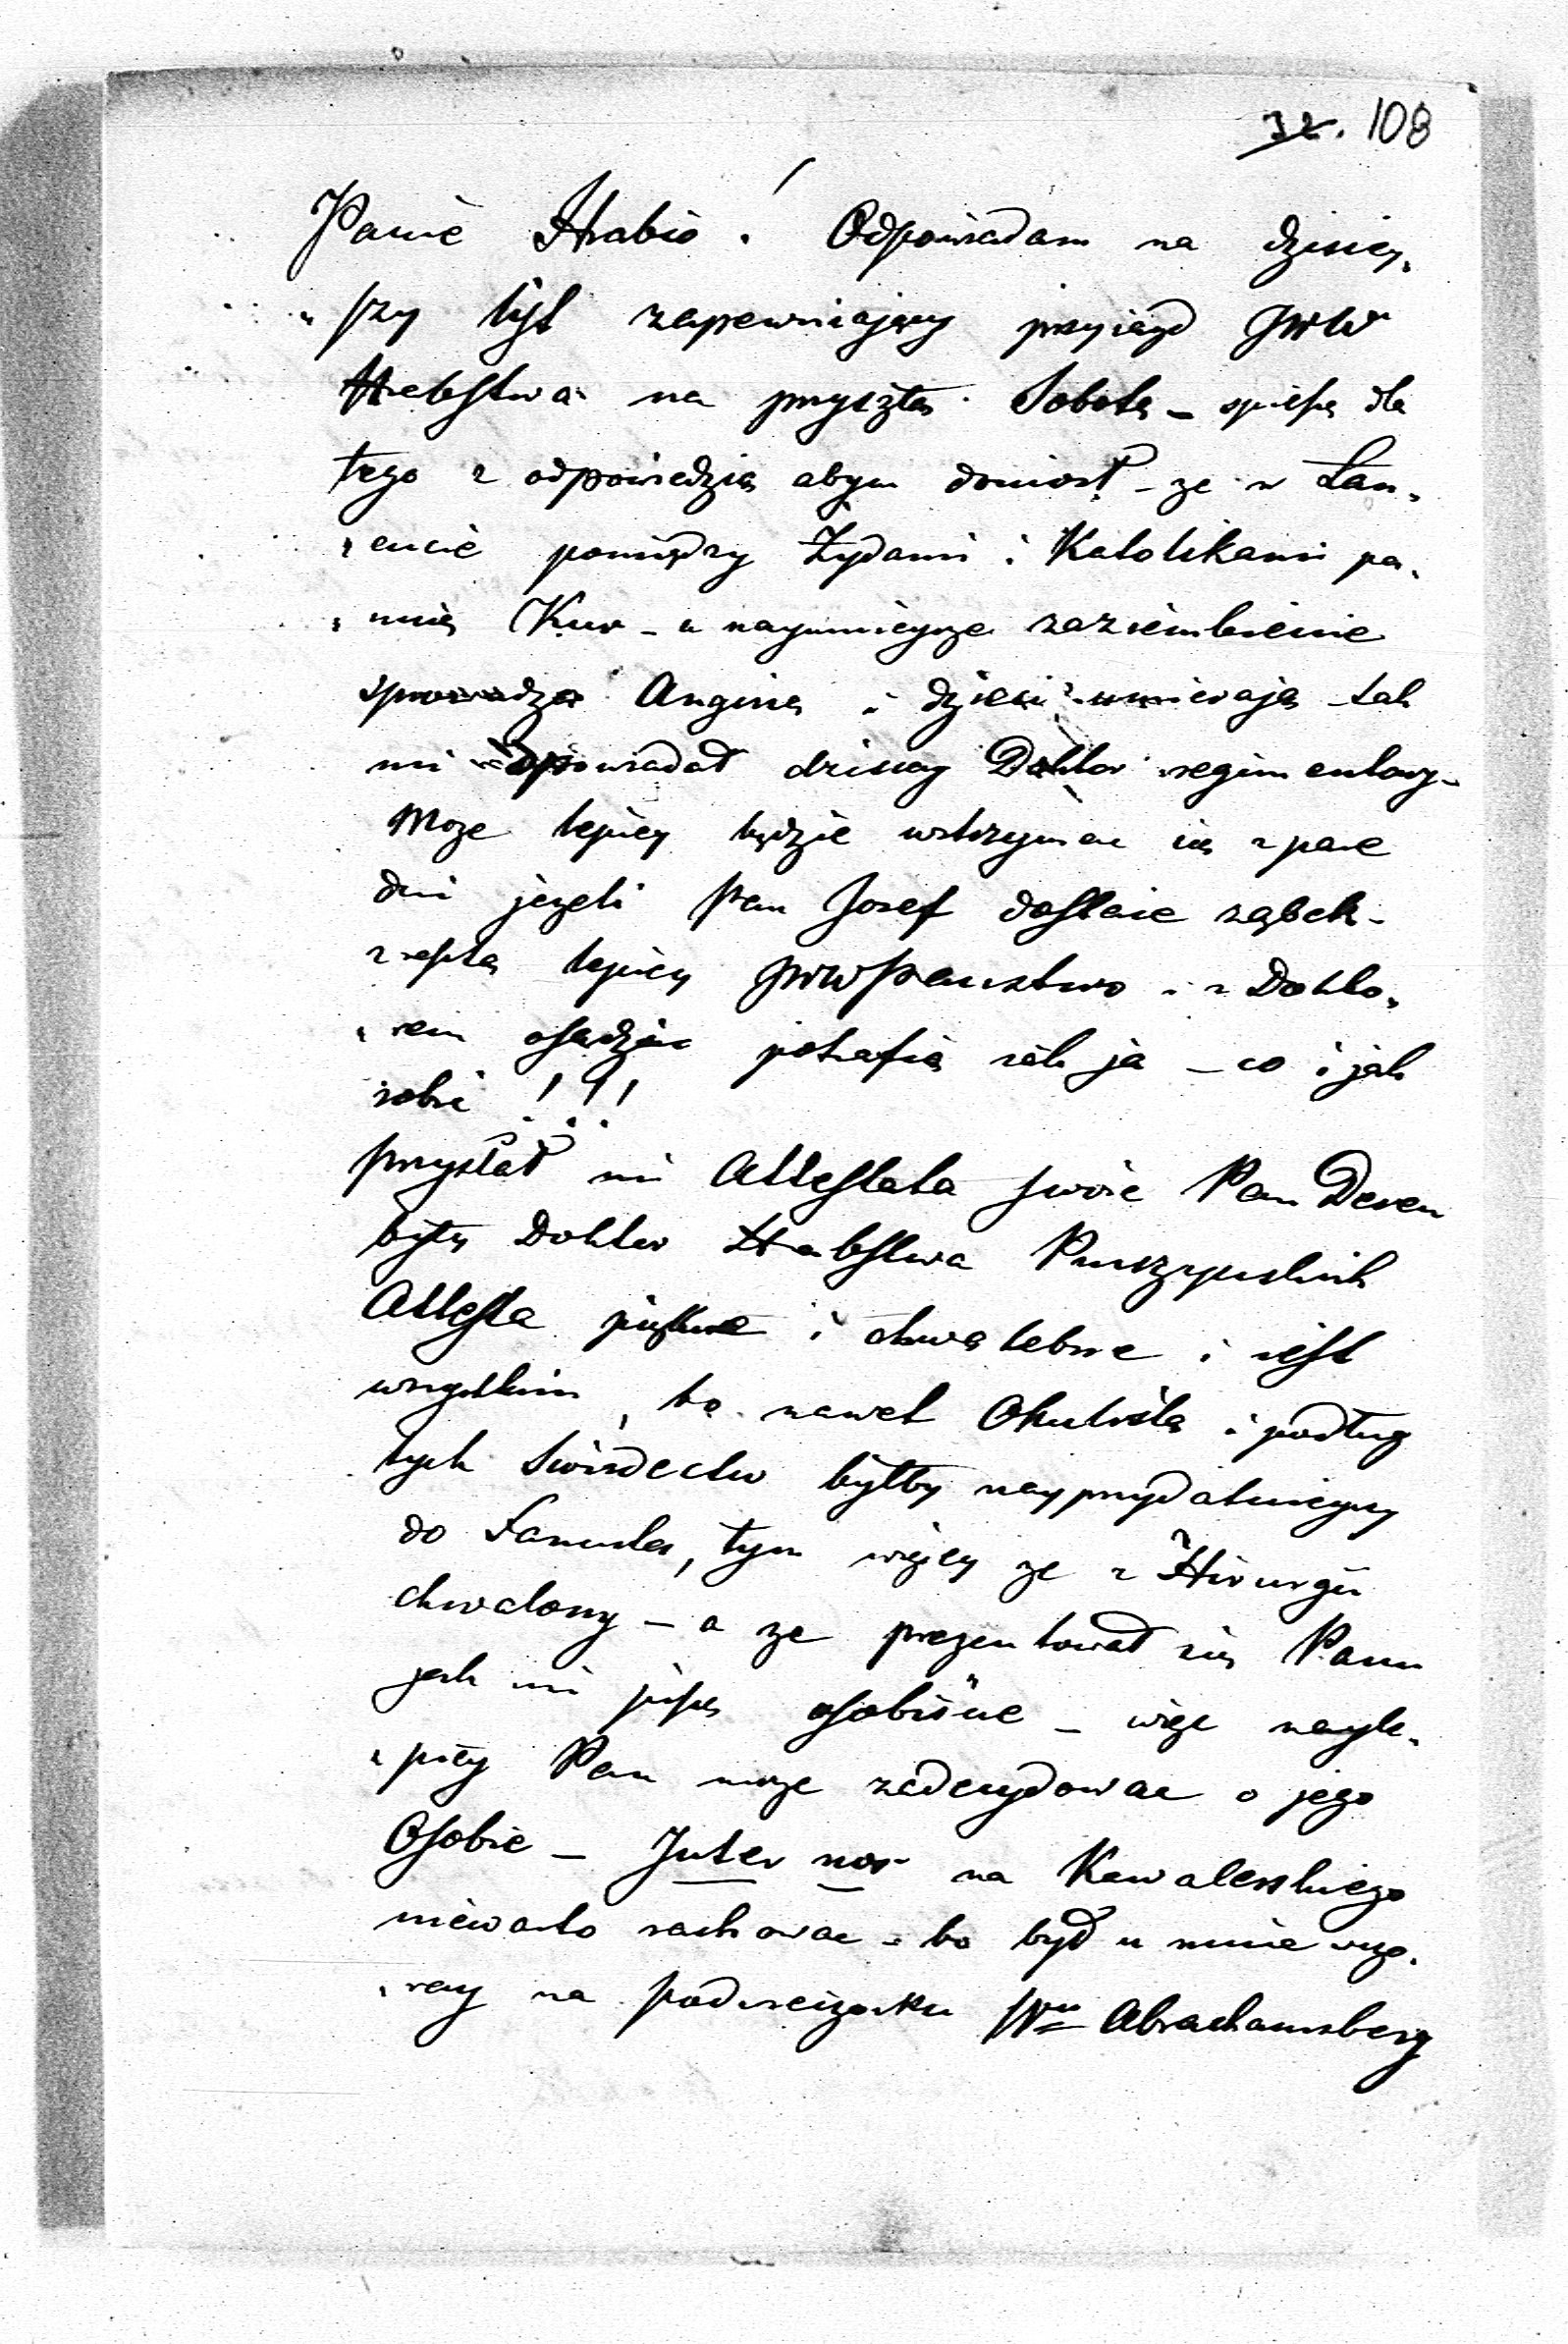 72. 108
Panie Hrabio! Odpowiadam na dzisiey„
„szy list zapewniający przyiazd JWW
Hrabstwa na przyszłą Sobotę – spieszę dla
tego z odpowiedzią abym doniosł – ze w Łan„
„cucie pomiędzy Żydami i Katolikami pa„
„nuią Kur – a naymnieysze zaziembienie
sprowadza Anginę i dzieci umieraią – tak
mi opowiadał dzisiay Doktor regimentowy –
Moze lepiey będzie wstrzymac się z pare
dni jezeli Pan Josef dostaie ząbek –
z resztą lepiey JWWPanstwo i z Dokto„
„rem osądzic potrafią iak ja – co i jak
robic !!!
przysłał mi Attestata swoie Pan Deren
były Doktor Hrabstwa
Attesta piękne i chwalebne i iest
wszystkim, bo nawet Okulistą i podług
tych Swiadectw byłby nayprzydatnieyszy
do Łancuta, tym więcey ze z Hirurgii
chwalony – a ze prezentował się Panu
jak mi pisze osobiście – więc nayle„
„piey Pan moze zadecydowac o jego
Osobie – Inter nos na Kowalerskiego
niewarto rachowac – bo był u mnie wczo„
„ray na podwieczorku Wny Abrachamsberg